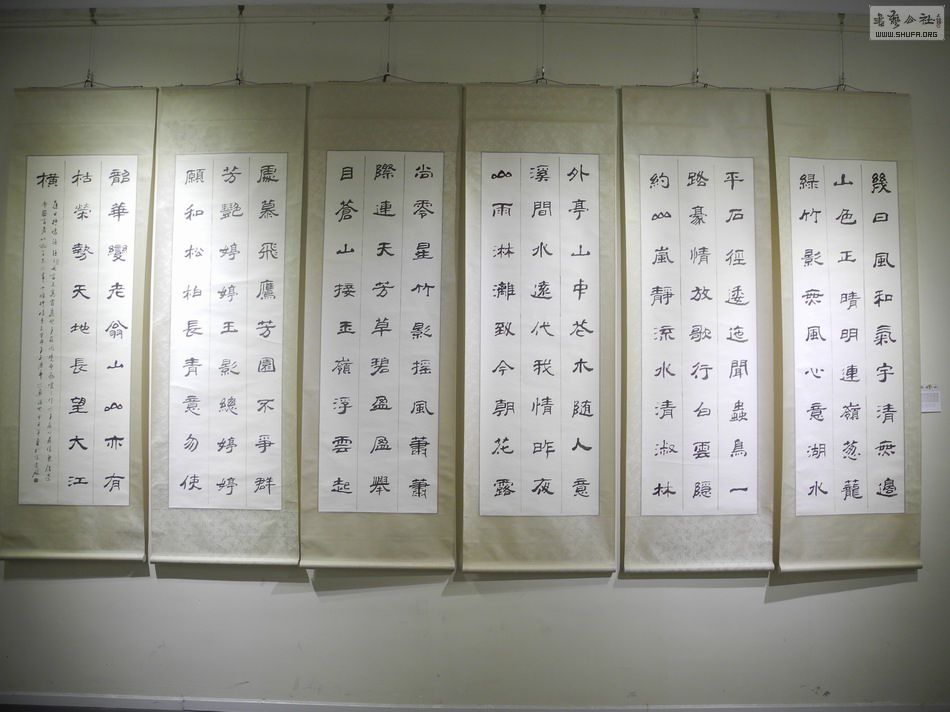 幾日風和氣宇清無邊
山色正晴明連嶺葱蘢
綠竹影無風心意湖水
平石徑逶迤聞蟲鳥一
路豪情放歌行白雲隱
約山嵐靜流水清淑林
外亭山中蒼木随人意
溪間水遠代我情昨夜
山雨淋灕致今朝花露
尚零星竹影摇風蕭蕭
際連天芳草碧盈盈舉
目蒼山接玉嶺浮雲起
處慕飛鷹芳園不爭群
芳艷婷婷玉影總婷婷
願和松柏長青意勿使
韶華變老翁山山亦有
枯榮勢天地長望大江
橫
WWW.SHUFA.ORG